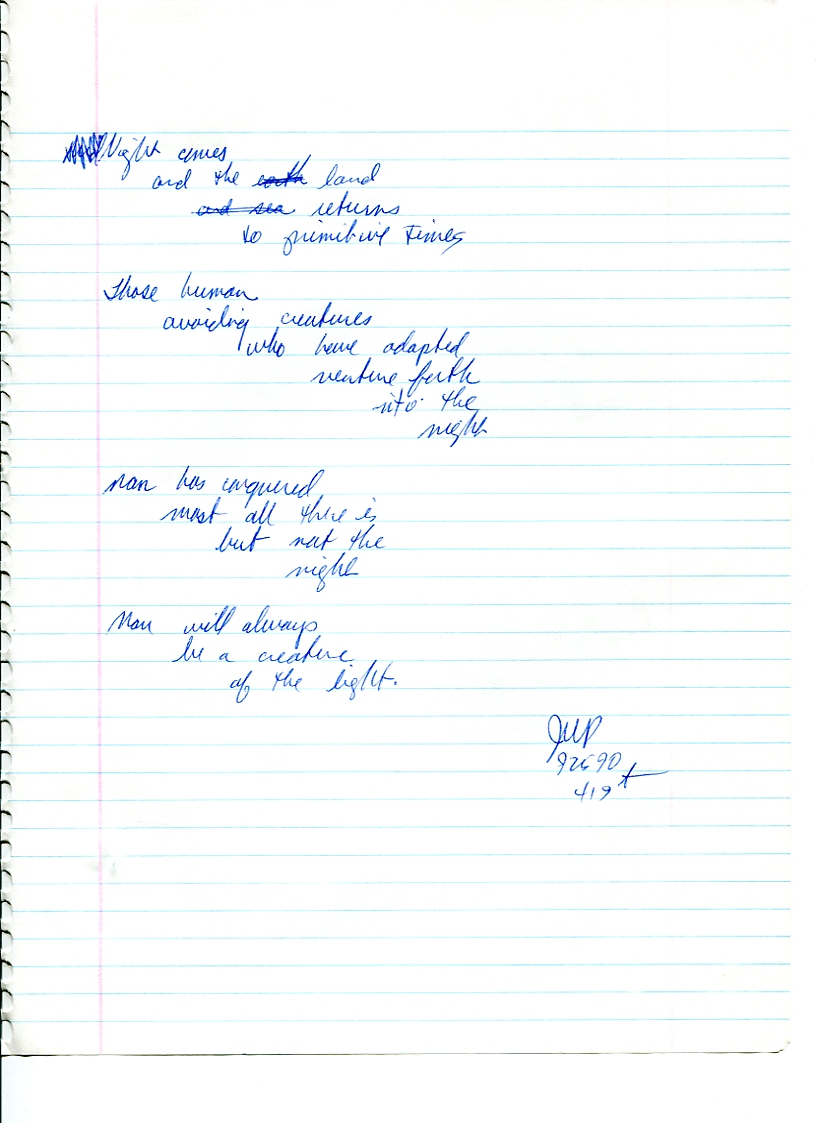 Night comes
and the earth land
and sea returns
to primitive times
Those human
avoiding creatures
who have adapted
venture forth
into the
night
Man has conquered
most all there is
but not the
night
Man will always
be a creature
of the light.
92690
419